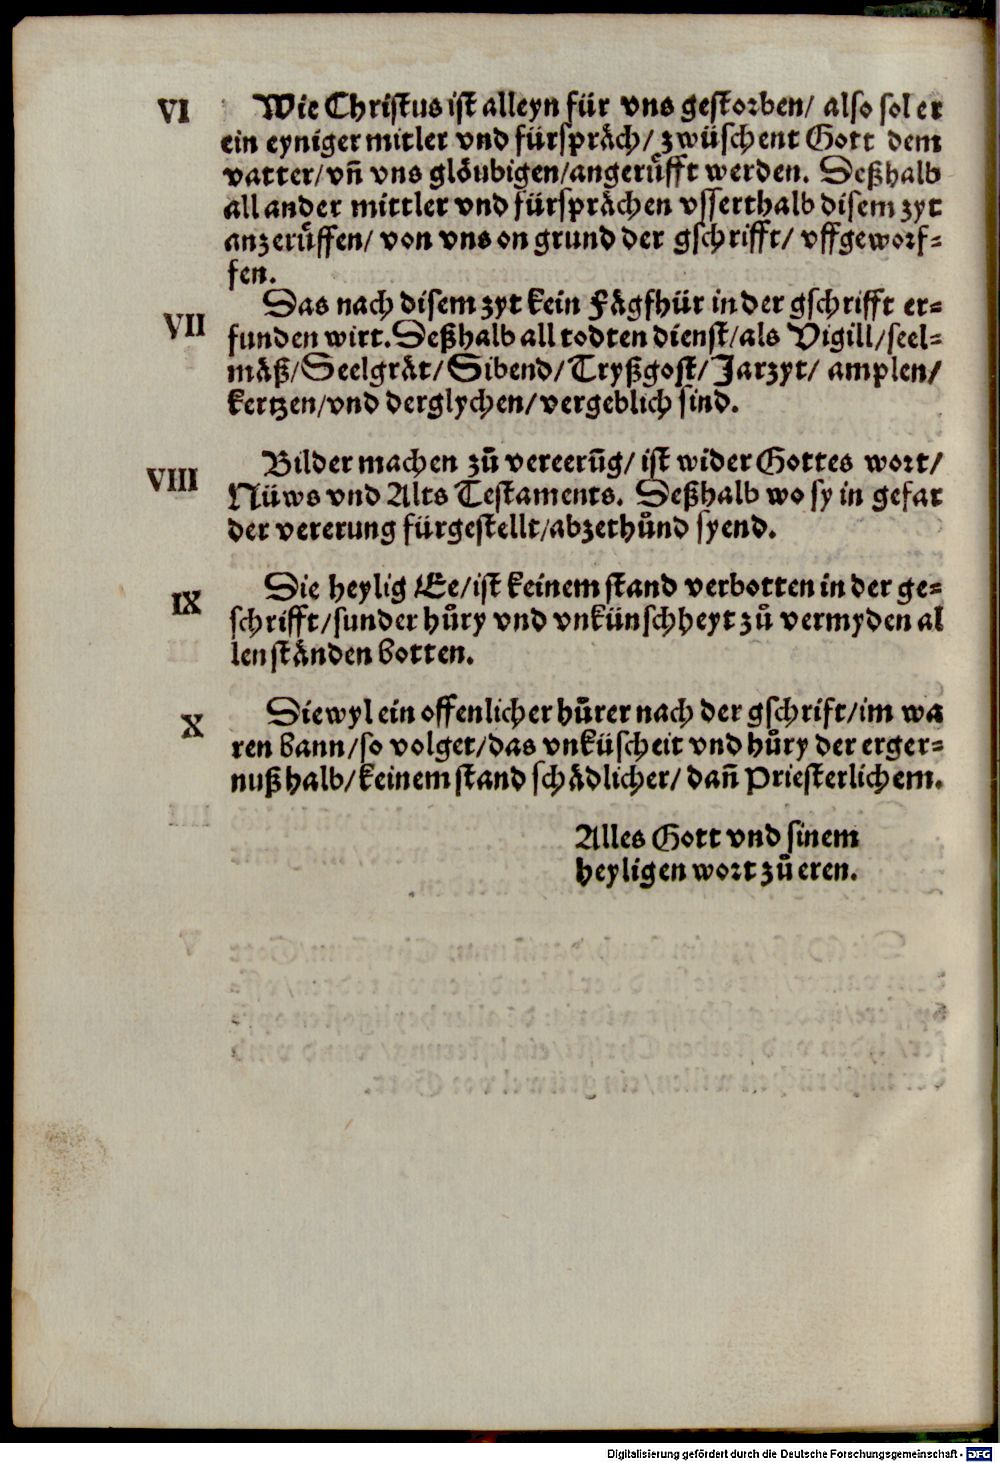 VI Wie Christus ist alleyn für vns gestorben/ also sol er
ein eyniger mitler vnd fürspräch/ zwüschent Gott dem
vatter/ vn̄ vns glöubigen/ angerüfft werden. Deßhalb
all ander mittler vnd fürsprächen vsserthalb disem zyt
anzerüffen/ von vns on grund der gschrifft/ vffgeworf-
fen.
VII Das nach disem zyt kein Fägfhür in der gschrifft er-
funden wirt. Deßhalb all todten dienst/ als Vigill/ seel-
mäß/ Seelgrät/ Sibend/ Tryßgost/ Jarzyt/ amplen/
kertzen/ vnd derglychen/ vergeblich sind.
VIII Bilder machen zů vereerūg/ ist wider Gottes wort/
Nüws vnd Alts Testaments. Deßhalb wo sy in gefar
der vererung fürgestellt/ abzethůnd syend.
IX Die heylig Ee/ ist keinem stand verbotten in der ge-
schrifft/ sunder hůry vnd vnkünschheyt zů vermyden al
len ständen botten.
X Diewyl ein offenlicher hůrer nach der gschrift/ im wa
ren bann/ so volget/ das vnküscheit vnd hůry der erger-
nuß halb/ keinem stand schädlicher/ dan̄ Priesterlichem.
Alles Gott vnd sinem
heyligen wort zů eren.
Digitalisierung gefördert durch die Deutsche Forschungsgemeinschaft - DFG